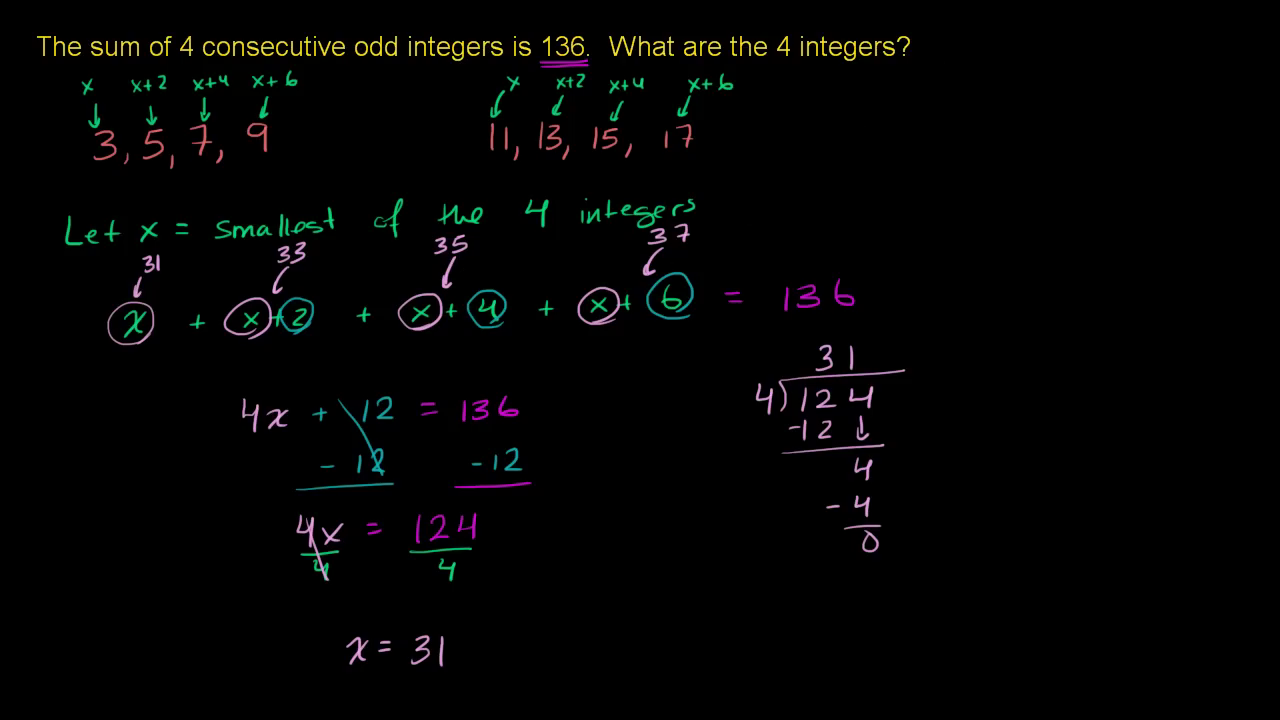 The sum of 4 consecutive odd integers is 136. What are the 4 integers?
x x+2 x+4 x+6 x x+2 x+4 x+6
3, 5, 7, 9 11, 13, 15, 17
Let x = smallest of the 4 integers
31 33 35 37
x + x+2 + x+4 + x+6 = 136
31
4x + 12 = 136 4)124
-12 ↓
- 12 -12 4
4x = 124 - 4
4 4 0
x = 31